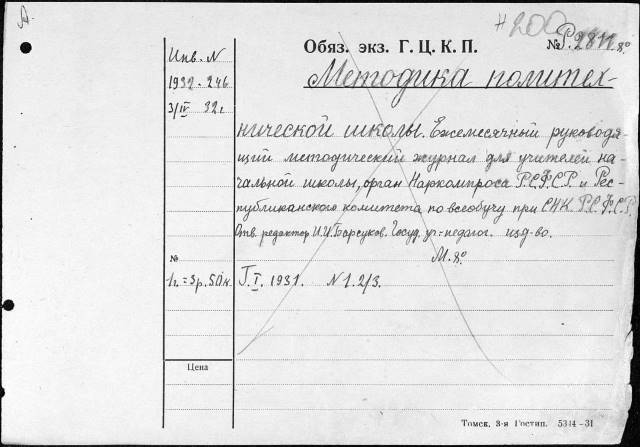 А.
#200
Обяз. экз. Г. Ц. К. П.
№Р.2811 8°
Инв. N
1932-246
3/IV 32г.
Методика политех-
нической школы. Ежемесячный руководя-
щий методический журнал для учителей на-
чальной школы, орган Наркомпроса Р.С.Ф.С.Р. и Рес-
публиканского комитета по всеобучу при СНК Р.С.Ф.С.Р.
Отв. редактор И.И. Барсуков. Госуд. уч.-педагог. изд-во.
М. 8°
№
1г.=3р.50к.
Г.I. 1931. N 1. 2/3.
Цена
Томск, 3-я Гостип. 5344-31